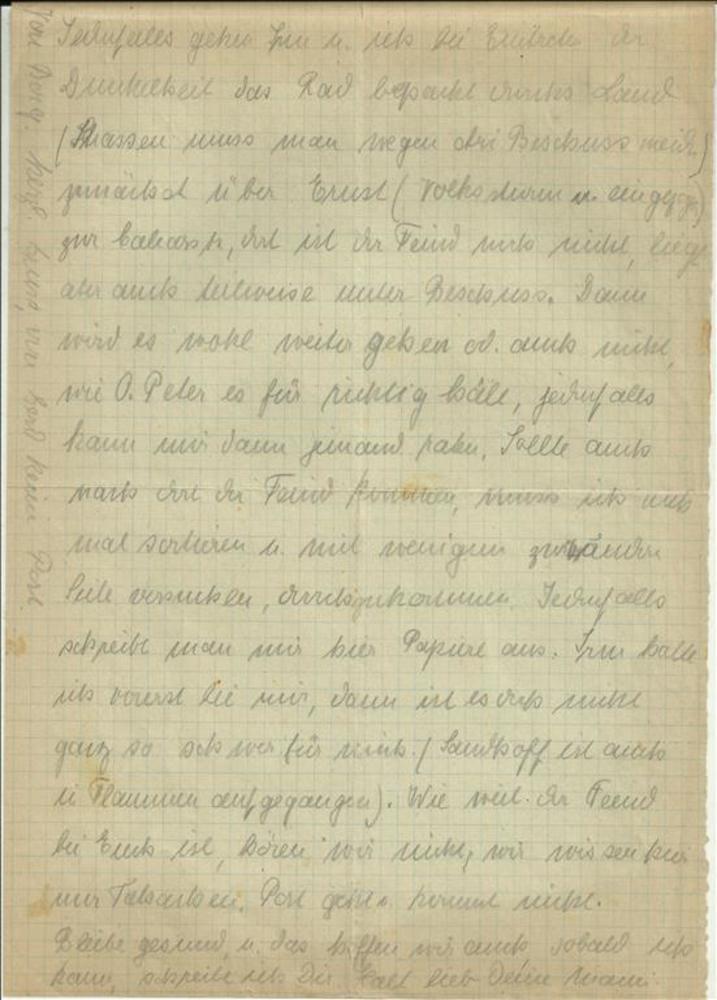 Jedenfalls gehen Irm u. ich bei Eintritt der
Dunkelheit das Rad bepackt durchs Land
(Strassen muss man wegen Beschuss meid.)
zunächst über Ernst (Volkssturm u. eingezog.)
zur dort ist der Feind noch nicht, liegt
aber auch teilweise unter Beschuss. Dann
wird es wohl weiter gehen od. auch nicht,
wie O. Peter es für richtig hält, jedenfalls
kann mir dann jemand raten. Sollte auch
nach dort der Feind kommen, muss ich noch
mal sortieren u. mit wenigem zur
Seite versuchen, durchzukommen. Jedenfalls
schreibt man mir hier Papiere aus. Irm halte
ich vorerst bei mir, dann ist es doch nicht
ganz so schwer für mich. (Sandhoff ist auch
in Flammen aufgegangen). Wie weit der Feind
bei Euch ist, hören wir nicht, wir wissen hier
nur Tatsachen. Post geht u. kommt nicht.
Bleibe gesund, u. das hoffen wir auch sobald ich
kann, schreibe ich Dir. Halt lieb Deine Mami.
Von herzl. Gruss, von dort keine Post